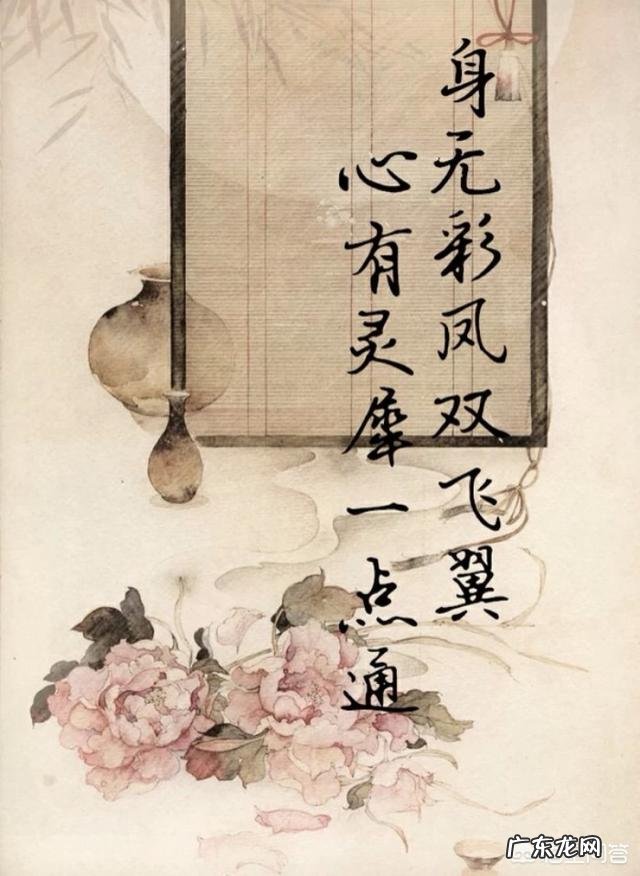 身无彩凤双飞翼
心有灵犀一点通
广东龙网